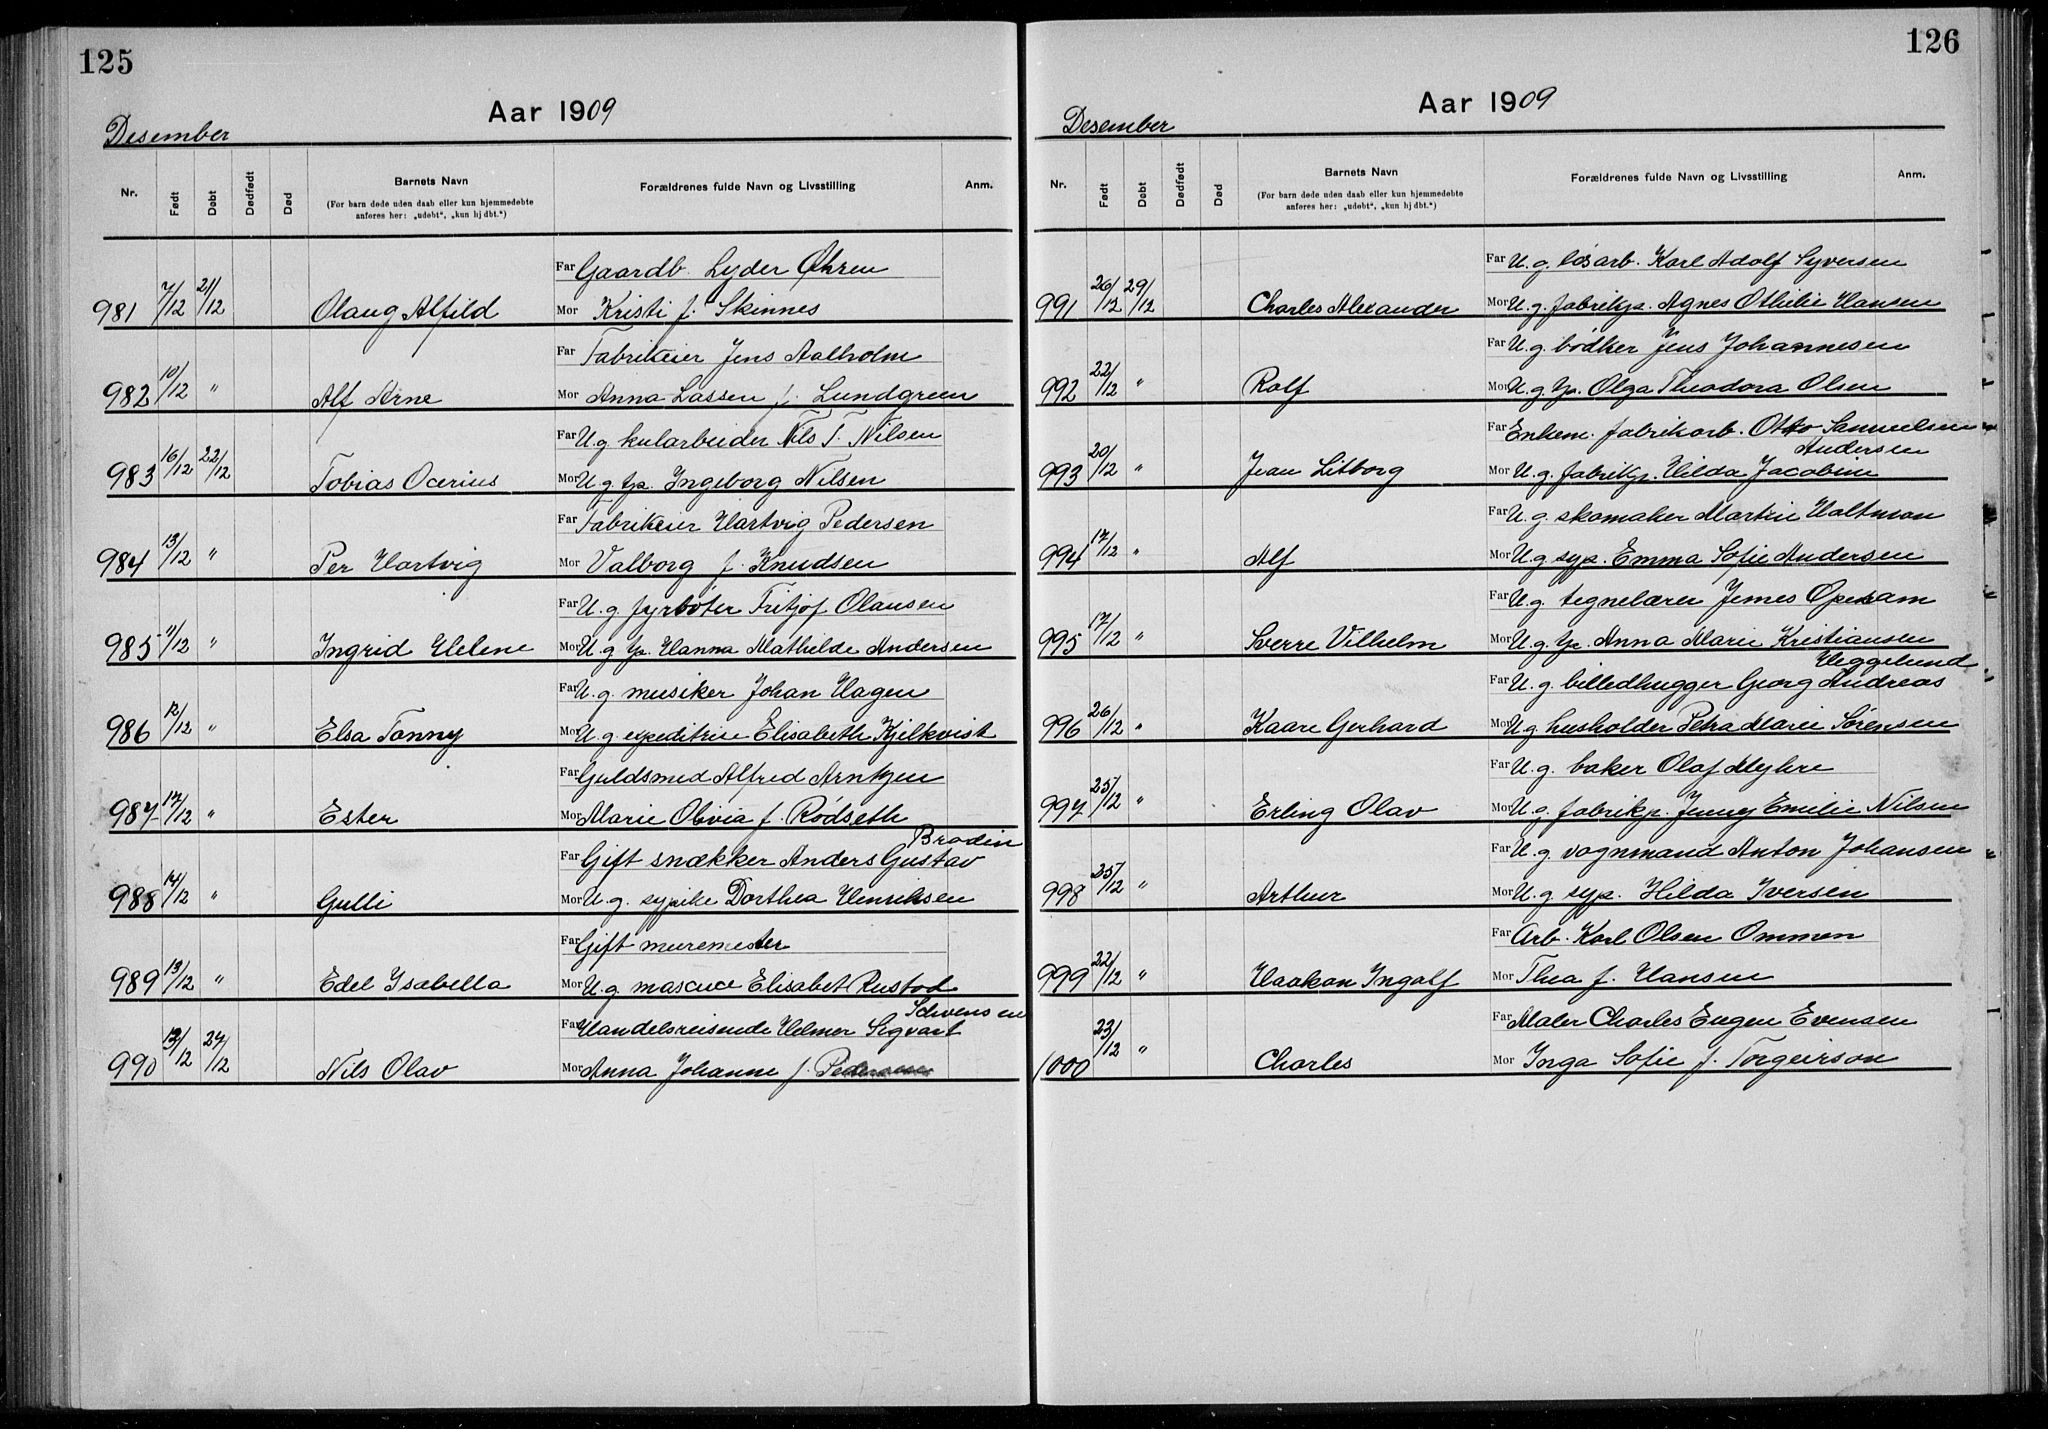 125
Aar 1909
Desember
Nr.
Født
Døbt
Dødfødt
Død
Barnets Navn
(For barn døde uden daab eller kun hjemmedøbte
anføres her: „udøbt“, „kun hj dbt.“)
Forældrenes fulde Navn og Livsstilling
Anm.
Far Gaardb. Lyder Øhren
981 7/12 21/12 Olaug Alfild Mor Kristi f. Skinnes
Far Fabrikeier Jens Aalholm
982 10/12 " Alf Arne Mor Anna Lassen f. Lundgreen
Far U.g. kularbeider Nils T. Nilsen
983 16/12 22/12 Tobias Ocerius Mor U.g. tjp. Ingeborg Nilsen
Far Fabrikeier Hartvig Pedersen
984 13/12 " Per Hartvig Mor Valborg f. Knudsen
Far U.g. fyrbøter Fritjof Olausen
985 11/12 " Ingrid Helene Mor U.g. tjp. Hanna Mathilde Andersen
Far U.g. musiker Johan Hagen
986 12/12 " Elsa Tonny Mor U.g. expeditrise Elisabeth Kjelkvist
Far Guldsmed Alfred Arntzen
987 17/12 " Ester Mor Marie Olivia f. Rødseth
Brodin
Far Gift snækker Anders Gustav
988 14/12 " Gulli Mor U.g. sypike Dorthea Henriksen
Far Gift muremester
989 13/12 " Edel Ysabella Mor U.g. Elisabet Rustad
Far Handelsreisende Helmer Sigvart
990 13/12 24/12 Nils Olav Mor Anna Johanne f. Pedersen
126
Aar 1909
Desember
Nr.
Født
Døbt
Dødfødt
Død
Barnets Navn
(For barn døde uden daab eller kun hjemmedøbte
anføres her: „udøbt“, „kun hj dbt.“)
Forældrenes fulde Navn og Livsstilling
Anm.
Far U.g. løsarb. Karl Adolf Syversen
991 26/12 29/12 Charles Alexander Mor U.g. fabrikp. Agnes Othilie Hansen
Far U.g. bødker Jens Johannesen
992 22/12 " Rolf Mor U.g. tjp. Olga Theodora Olsen
Far Enkem. fabrikarb. Otto Samuelsen
Andersen
993 20/12 " Jean Litborg Mor U.g. fabrikp. Hilda Jacobine
Far U.g. skomaker Martin Holtman
994 17/12 " Alf Mor U.g. syp. Emma Sofie Andersen
Far U.g. tegnelærer Jemes
995 17/12 " Sverre Vilhelm Mor U.g. tjp. Anna Marie Kristiansen
Heggelund
Far U.g. billedhugger Georg Andreas
996 26/12 " Kaare Gerhard Mor U.g. husholder Petra Marie Sørensen
Far U.g. baker Olaf Myhre
997 25/12 " Erling Olav Mor U.g. fabrikp. Jenny Emilie Nilsen
Far U.g. vognmand Anton Johansen
998 25/12 " Arthur Mor U.g. syp. Hilda Iversen
Far Arb. Karl Olsen Ommen
999 22/12 " Haakon Ingolf Mor Thea f. Hansen
Far Maler Charles Eugen Evensen
1000 23/12 " Charles Mor Inga Sofie f. Torgeirson